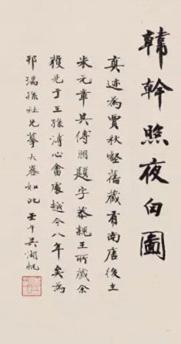 韩幹照夜白圖
真迹為賈秋壑舊藏有南唐後主
米元章吳傅朋題字恭親王所藏余
獲見于王孫溥心畬處越今八年矣為
邦瑞孫社兄摹大卷如此壬午吳湖帆